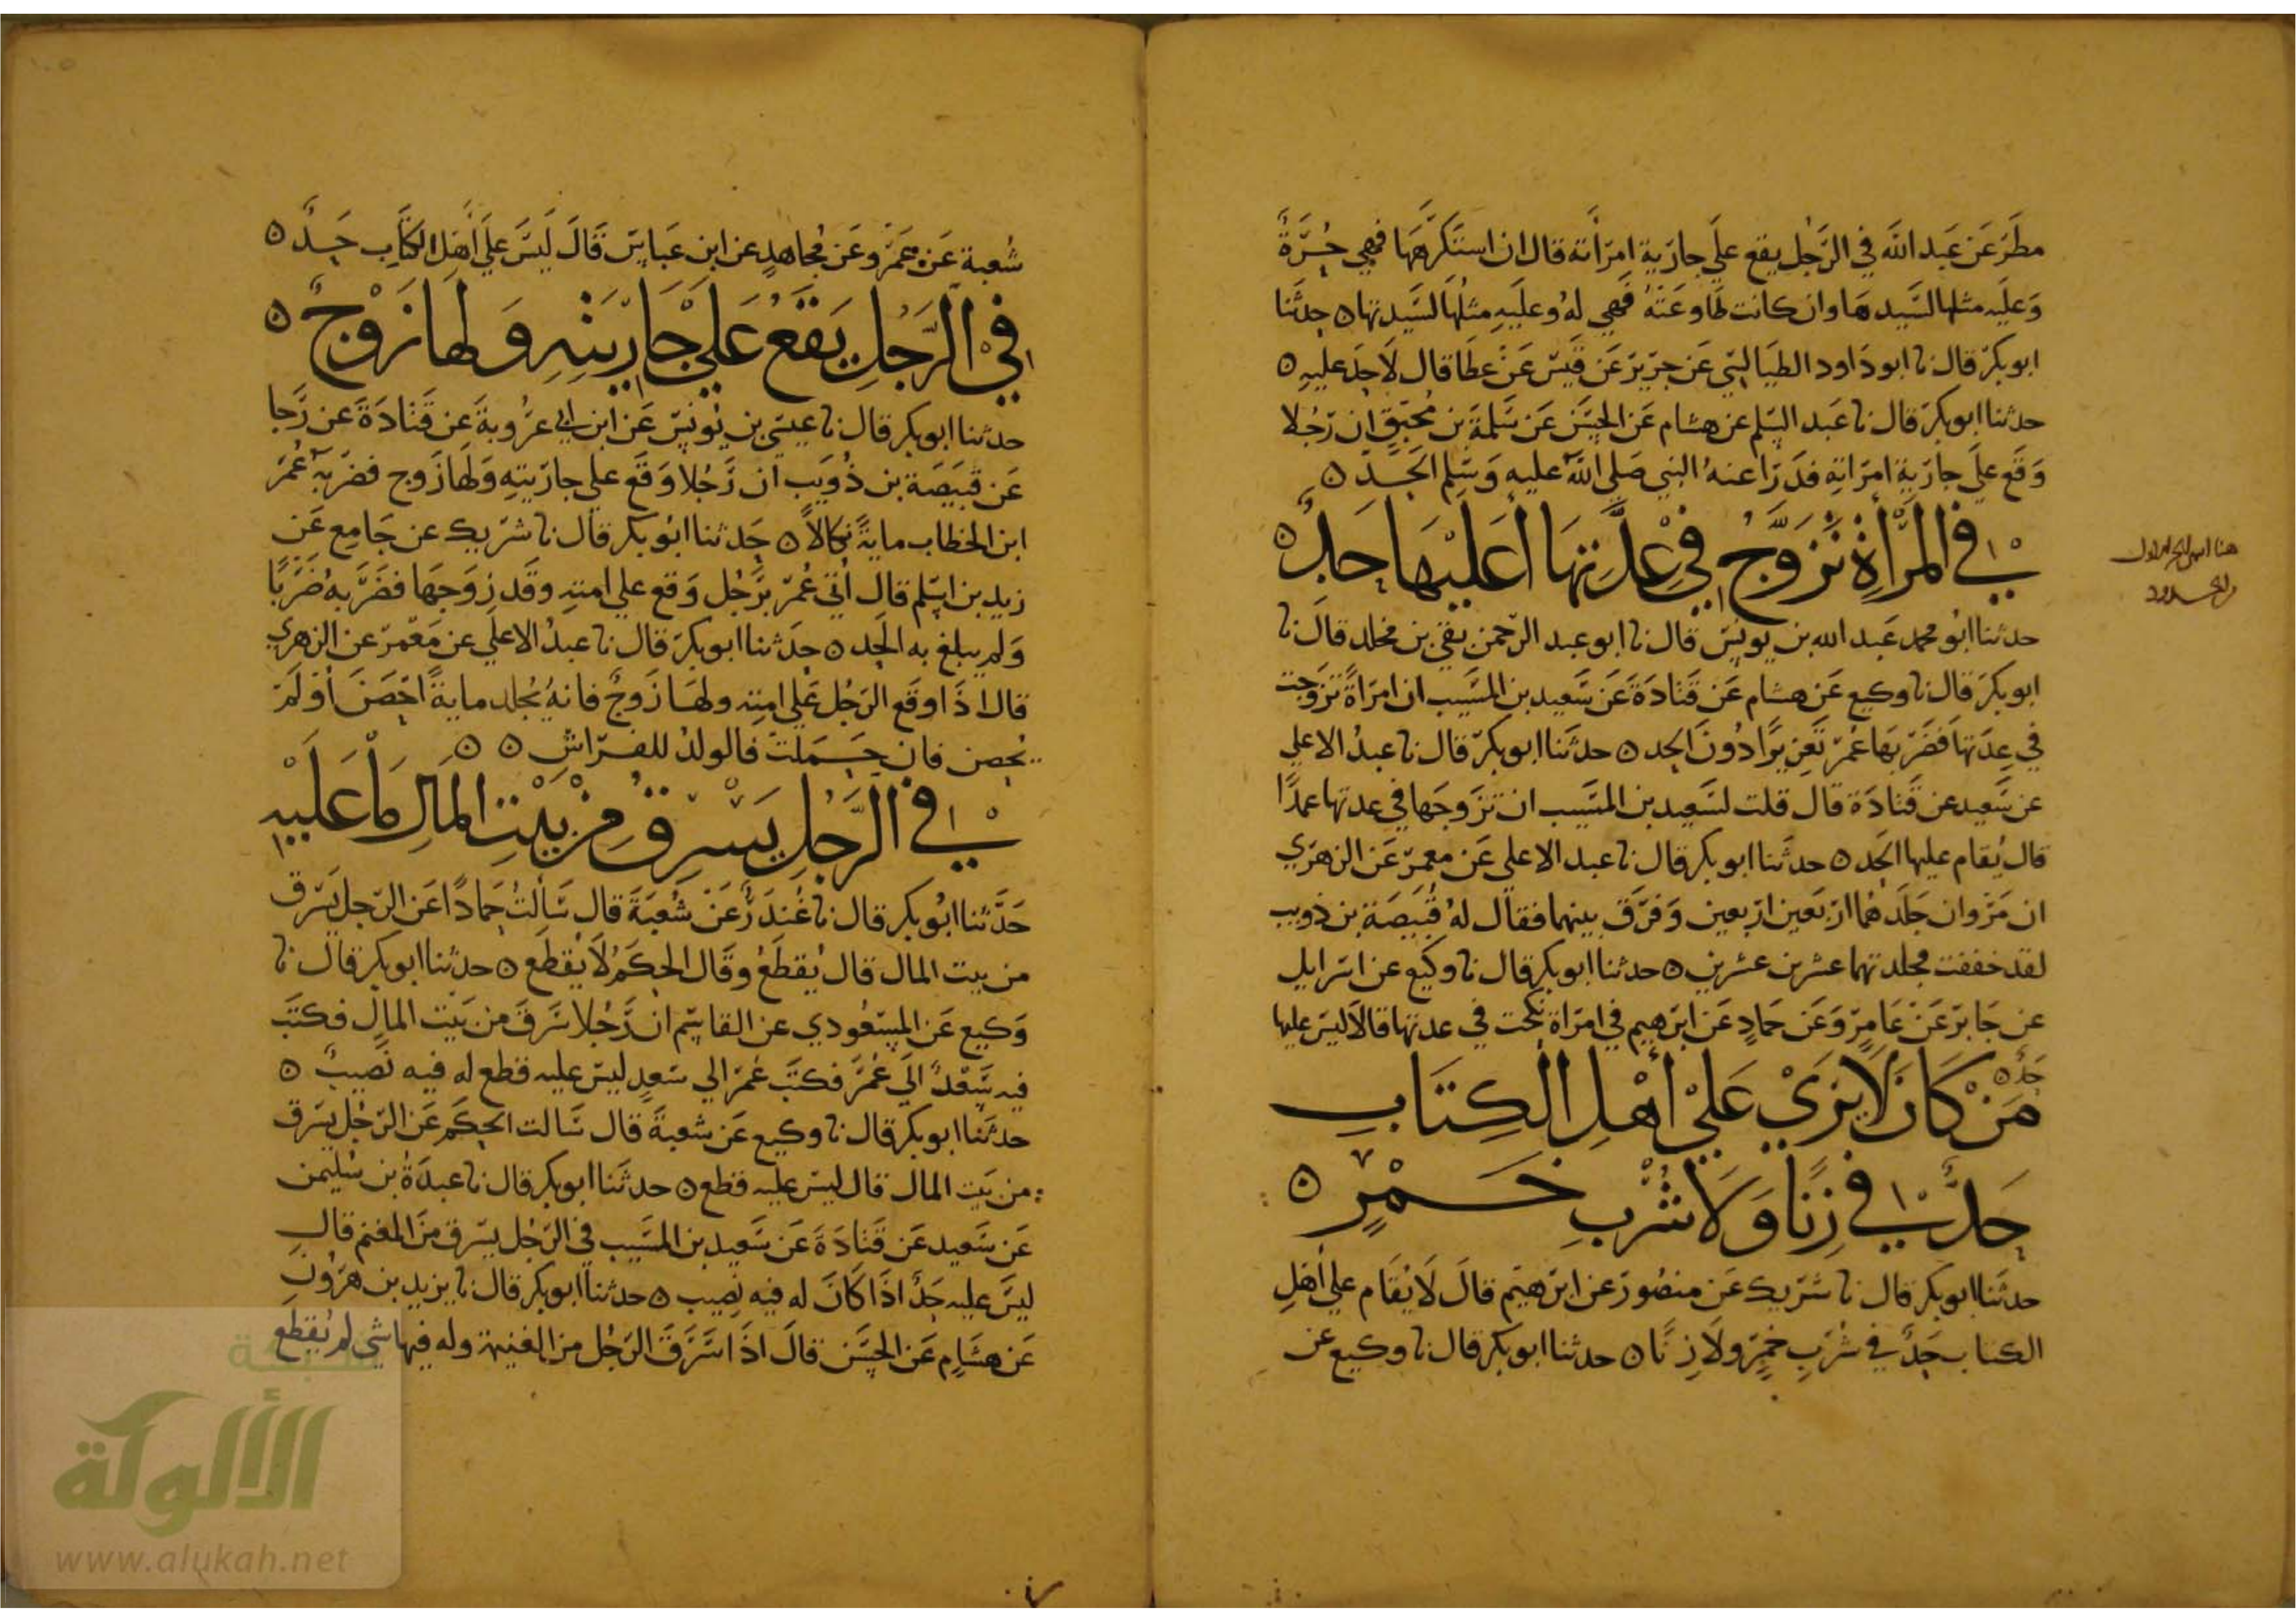 مطر عن عبد الله في الرجل يقع علي جارية امرأته قال ان استكرهها فهي حرة
وعليه مثلها لسيدها وان كانت طاوعته فهي له وعليه مثلها لسيدتها ه حدثنا
ابو بكر قال نا ابو داود الطيالسي عن جرير عن قيس عن عطا قال لا حد عليه ه
حدثنا ابو بكر قال نا عبد السلم عن هشام عن الحسن عن سلمة بن محبق ان رجلا
وقع علي جارية امراته فدرا عنه النبي صلي الله عليه وسلم الحد ه
في المرأة تزوج في عدتها أعليها حد ه
هنا اسم الجز الاول
من الحدود
حدثنا ابو محمد عبد الله بن يونس قال نا ابو عبد الرحمن بقي بن مخلد قال نا
ابو بكر قال نا وكيع عن هشام عن قتادة عن سعيد بن المسيب ان امراة تزوجت
في عدتها فضربها عمر تعزيرا دون الحد ه حدثنا ابو بكر قال نا عبد الاعلي
عن سعيد عن قتادة قال قلت لسعيد بن المسيب ان تزوجها في عدتها عمدا
قال يقام عليها الحد ه حدثنا ابو بكر قال نا عبد الاعلي عن معمر عن الزهري
ان مروان جلدهما اربعين اربعين وفرق بينهما فقال له قبيصة بن ذويب
لقد خففت فجلدتهما عشرين عشرين ه حدثنا ابو بكر قال نا وكيع عن اسرايل
عن جابر عن عامر وعن حماد عن ابرهيم في امراة نكحت في عدتها قالا ليس عليها
حد ه
من كان لا يري علي أهل الكتاب
حد في زنا ولا شرب خمر ه
حدثنا ابو بكر قال نا شريك عن منصور عن ابرهيم قال لا يقام علي أهل
الكتاب حد في شرب خمر ولا زنا ه حدثنا ابو بكر قال نا وكيع عن
شعبة عن عمرو عن مجاهد عن ابن عباس قال ليس علي أهل الكتاب حد ه
في الرجل يقع علي جاريته ولها زوج ه
حدثنا ابو بكر قال نا عيسي بن يونس عن ابن ابي عروبة عن قتادة عن رجا
عن قبيصة بن ذويب ان رجلا وقع علي جاريته ولها زوج فضربه عمر
ابن الخطاب ماية نكالا ه حدثنا ابو بكر قال نا شريك عن جامع عن
زيد بن اسلم قال اتي عمر برجل وقع علي امته وقد زوجها فضربه ضربا
ولم يبلغ به الحد ه حدثنا ابو بكر قال نا عبد الاعلي عن معمر عن الزهري
قال اذا وقع الرجل علي امته ولها زوج فانه يجلد ماية احصن أو لم
يحصن فان حملت فالولد للفراش ه ه
في الرجل يسرق من بيت المال ما عليه
حدثنا ابو بكر قال نا غندر عن شعبة قال سالت حمادا عن الرجل يسرق
من بيت المال قال يقطع وقال الحكم لا يقطع ه حدثنا ابو بكر قال نا
وكيع عن المسعودي عن القاسم ان رجلا سرق من بيت المال فكتب
فيه سعد الي عمر فكتب عمر الي سعد ليس عليه قطع له فيه نصيب ه
حدثنا ابو بكر قال نا وكيع عن شعبة قال سالت الحكم عن الرجل يسرق
من بيت المال قال ليس عليه قطع ه حدثنا ابو بكر قال نا عبدة بن سليمن
عن سعيد عن قتادة عن سعيد بن المسيب في الرجل يسرق من المغنم قال
ليس عليه حد اذا كان له فيه نصيب ه حدثنا ابو بكر قال نا يزيد بن هرون
عن هشام عن الحسن قال اذا سرق الرجل من الغنيمة وله فيها شي لم يقطع
شبكة
الألوكة
www.alukah.net